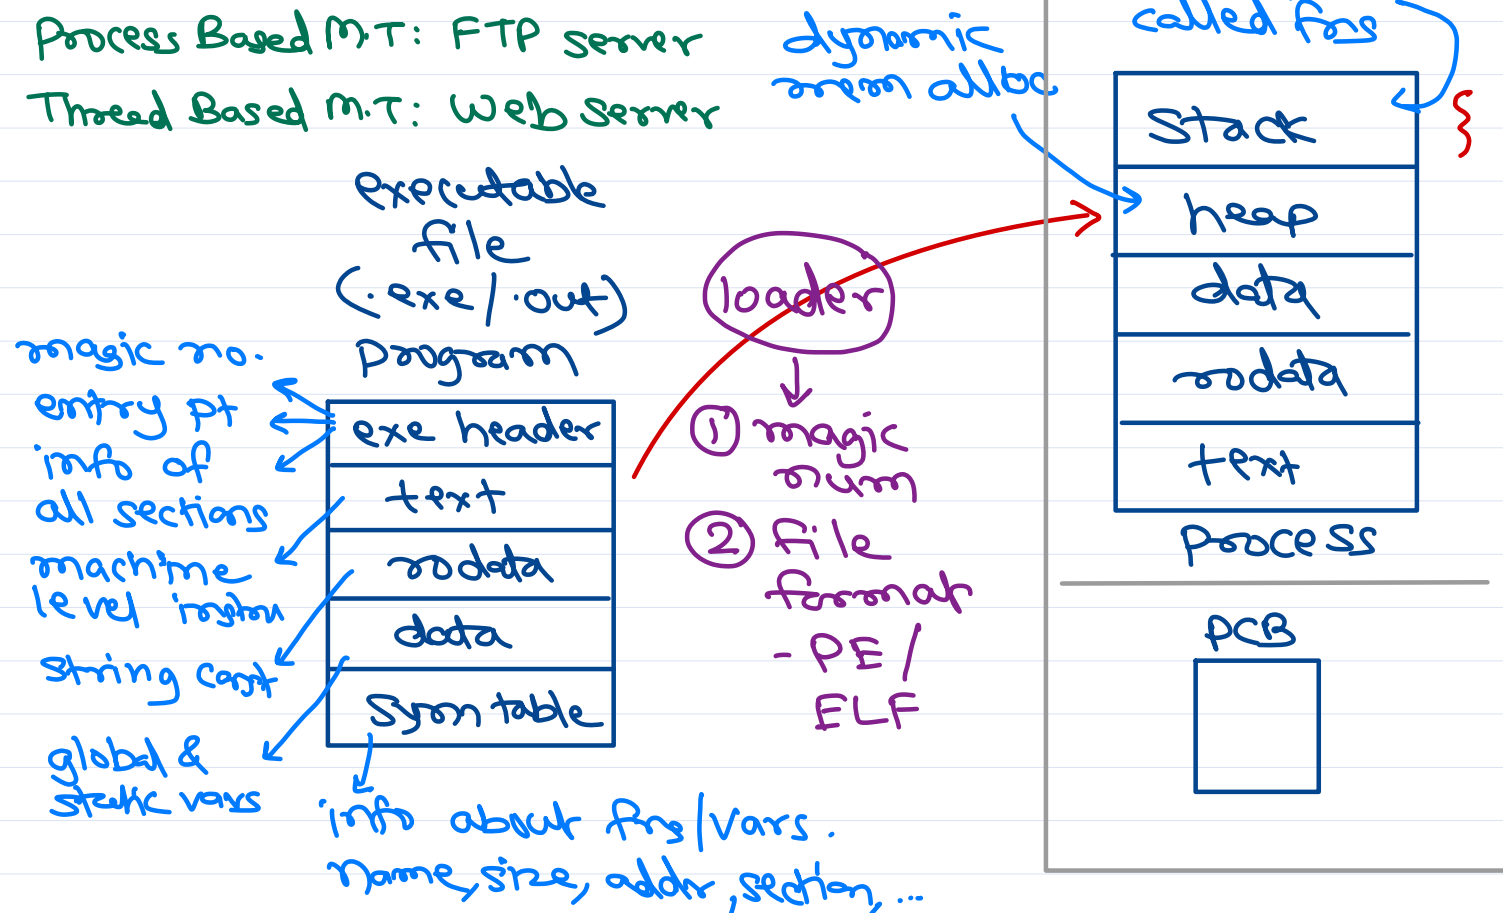 Process Based M.T: FTP server
Thread Based M.T: Web server
executable
file
(.exe/.out)
program
magic no.
entry pt
info of
all sections
machine
level instrn
string const
global &
static vars
exe header
text
rodata
data
sym table
info about fns/vars.
name, size, addr, section, ...
loader
① magic
num
② file
format
- PE/
ELF
dynamic
mem alloc
called fns
stack
heap
data
rodata
text
process
PCB